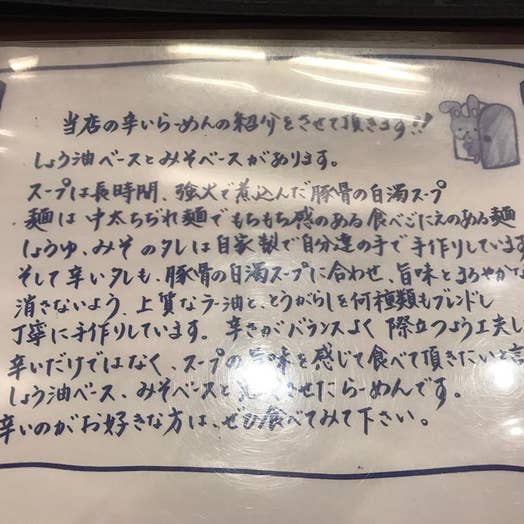 当店の辛いらーめんの紹介をさせて頂きます!!
しょう油ベースとみそベースがあります。
スープは長時間、強火で煮込んだ豚骨の白濁スープ
麺は中太ちぢれ麺でもちもち感のある食べごたえのある麺
しょうゆ、みそのタレは自家製で自分達の手で手作りしています
そして辛いタレも、豚骨の白濁スープに合わせ、旨味とまろやかな
消さないよう、上質なラー油と、とうがらしを何種類もブレンドし
丁寧に手作りしています。辛さがバランスよく際立つよう工夫し
辛いだけではなく、スープの旨味を感じて食べて頂きたいと
しょう油ベース、みそベースと させたらーめんです。
辛いのがお好きな方は、ぜひ食べてみて下さい。